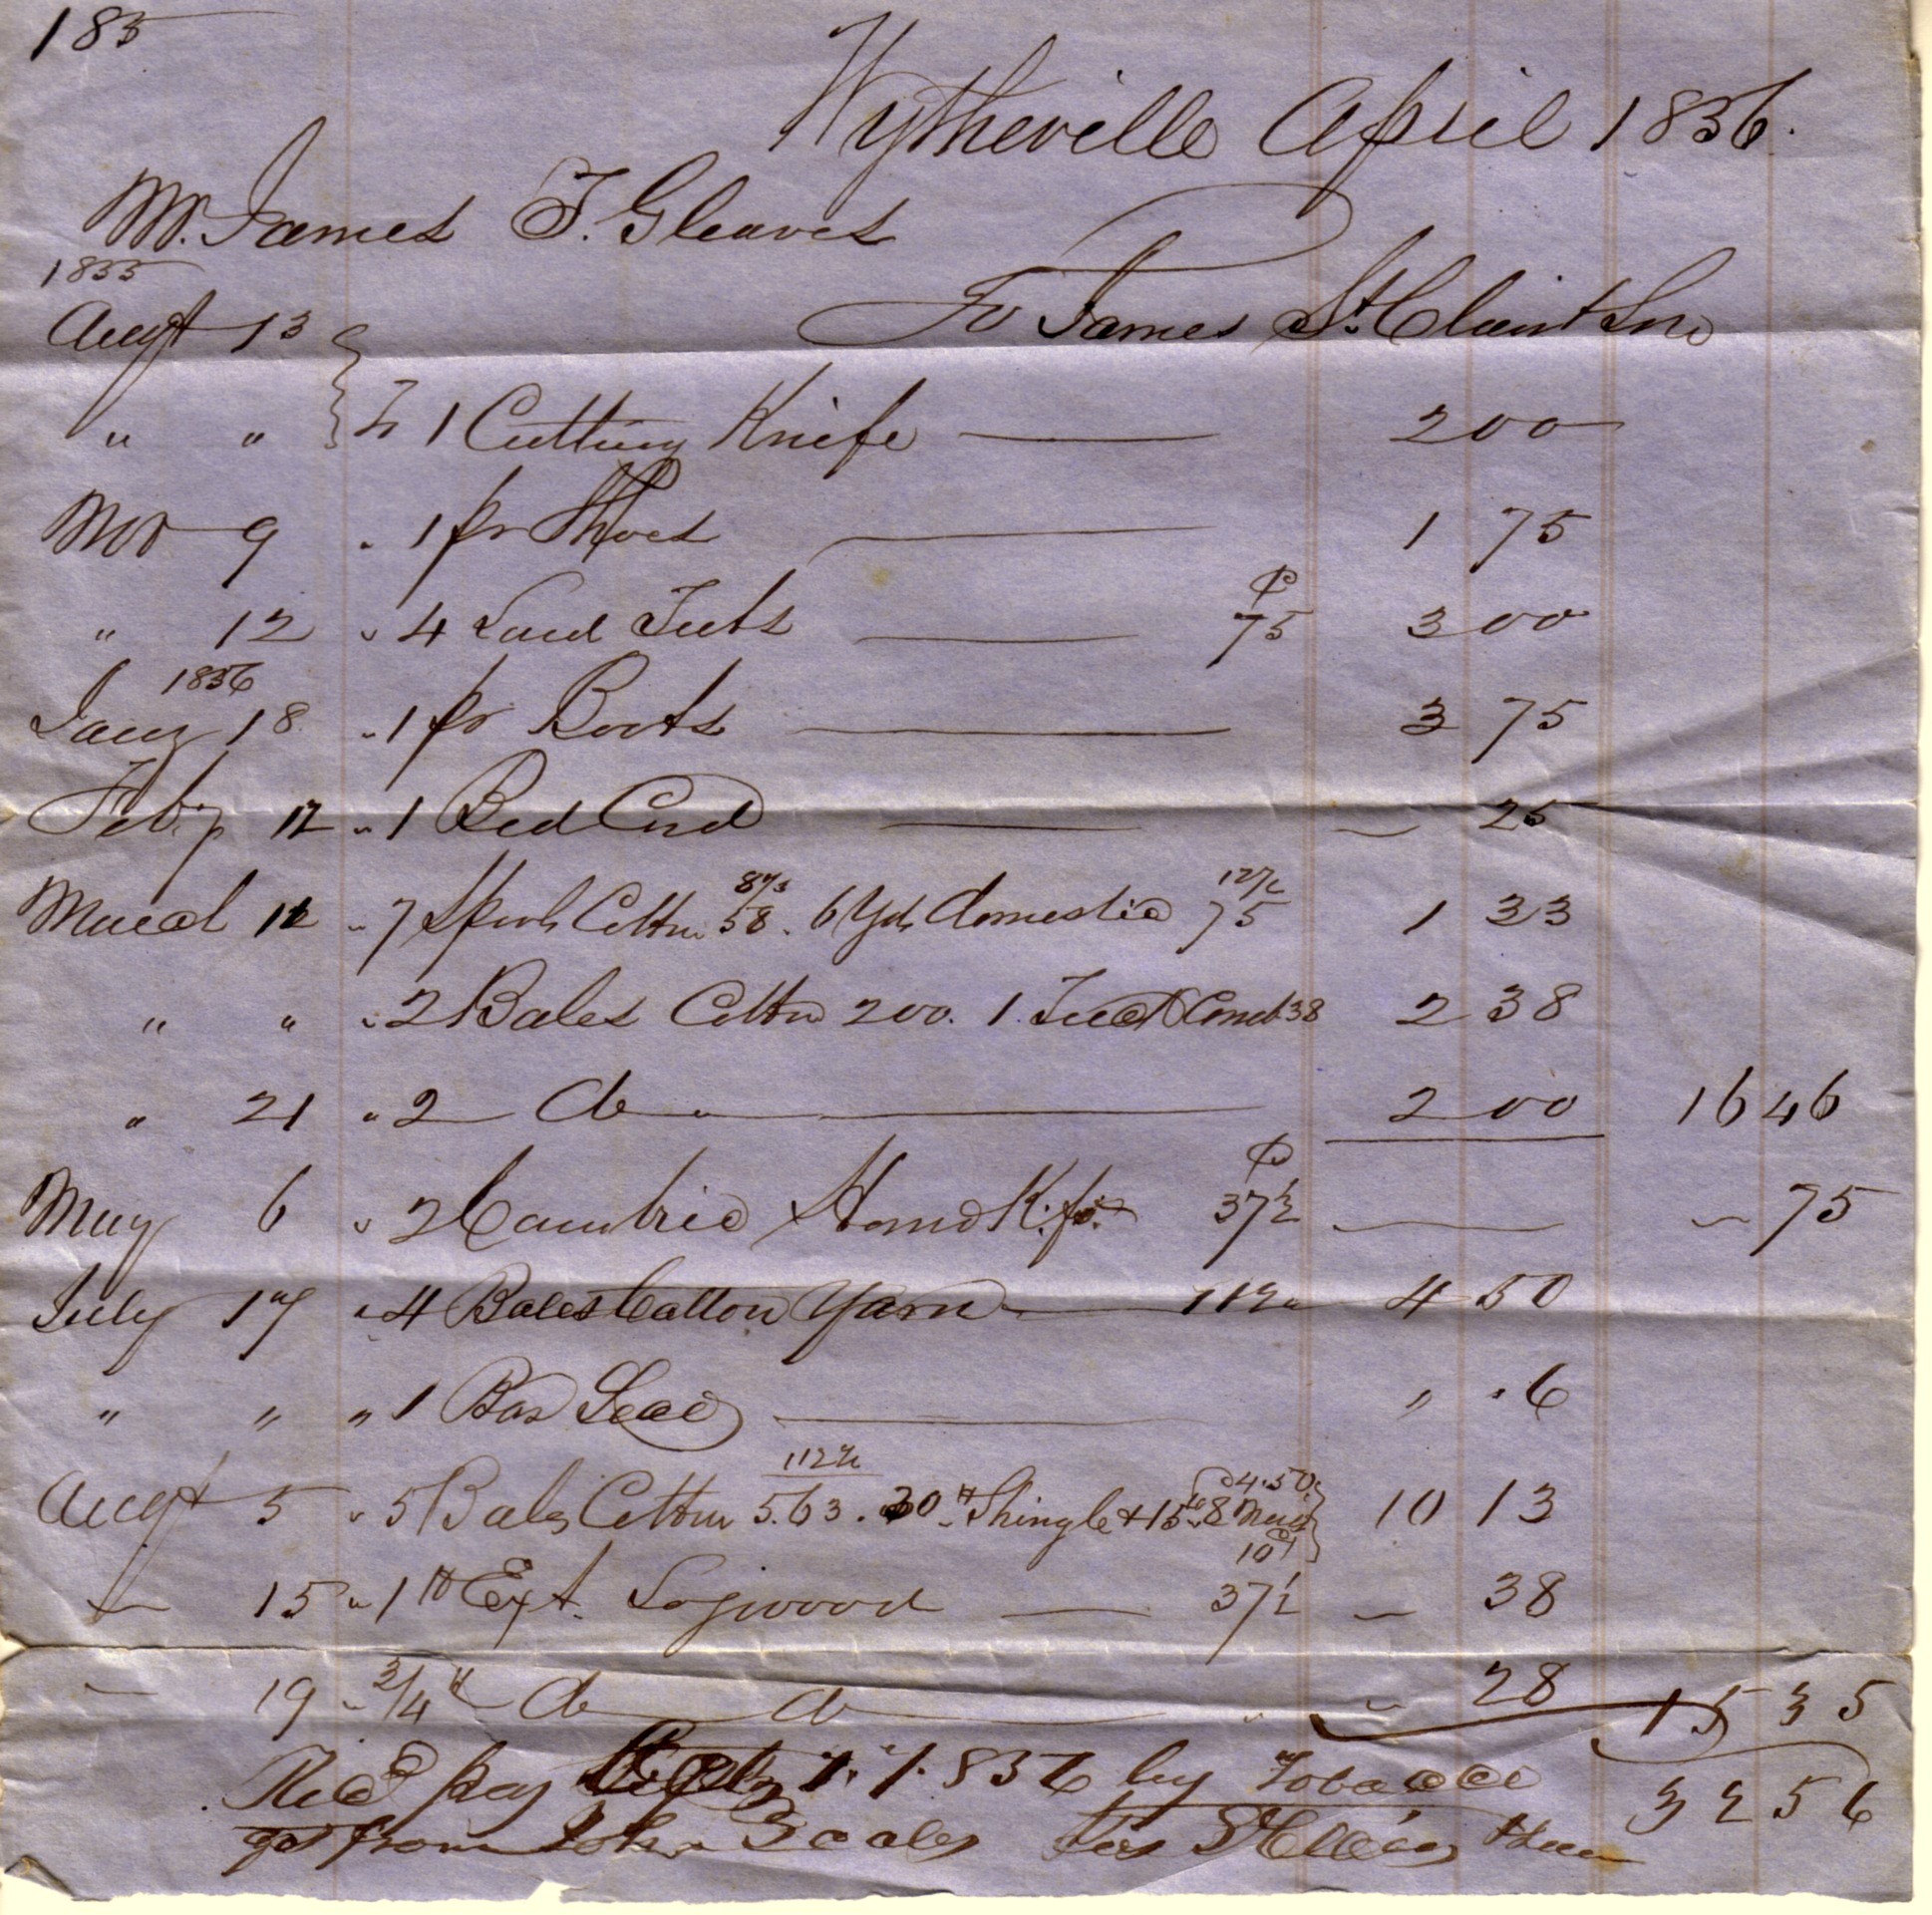 185
Wytheville April 1856.
Mr. James T. Gleaves
1855
Augt 13 To James St.Clair &
" " To 1 Cutting Knife 2 00
Nov 9 " 1 pr Shoes 1 75
" 12 " 4 Lard Tubs 75 3 00
1856
Jany 18 " 1 pr Boots 3 75
Feby 12 " 1 Bed Cord 25
March 12 " 7 Spools Cotton 8 1/3 58. 6 Yds domestic 12 1/2 75 1 33
" " " 2 Bales Cotton 200. 1 Tuck Comb 38 2 38
" 21 " 2 do " 2 00 16 46
May 6 " 2 Cambric Hand K.fs 37½ 75
July 17 " 4 Bales Cotton Yarn 112½ 4 50
" " " 1 Bar Lead " " 6
Augt 5 " 5 Bales Cotton 112½ 5.63. 30 # Shingle & 15 # 8 10 4.50 10 13
" 15 " 1 # Ext. Logwood 37½ 38
" 19 " 3/4 # do do 28 15 35
Recd pay 1856 by Tobacco 32 56
got from John for St Clair &